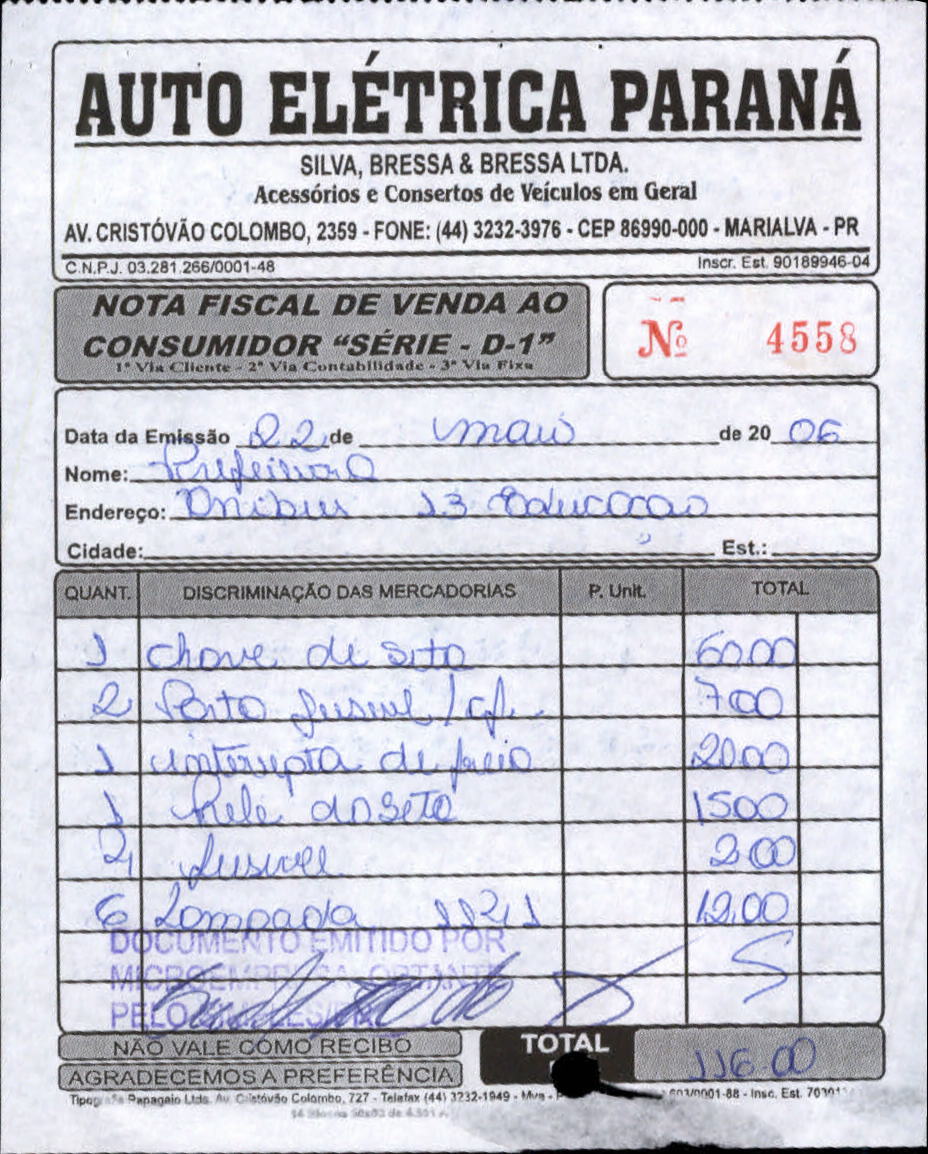 AUTO ELÉTRICA PARANÁ
SILVA, BRESSA & BRESSA LTDA.
Acessórios e Consertos de Veículos em Geral
AV. CRISTÓVÃO COLOMBO, 2359 - FONE: (44) 3232-3976 - CEP 86990-000 - MARIALVA - PR
C.N.P.J. 03.281.266/0001-48 Inscr. Est. 90189946-04
NOTA FISCAL DE VENDA AO
CONSUMIDOR “SÉRIE - D-1”
1ª Via Cliente - 2ª Via Contabilidade - 3ª Via Fixa
Nº 4558
Data da Emissão 22 de maio de 20 06
Nome: Prefeitura
Endereço: Onibus 13 Educacao
Cidade: Est.:
QUANT. DISCRIMINAÇÃO DAS MERCADORIAS P. Unit. TOTAL
1 chave de seta 60.00
2 Porta fusivel 7.00
1 de freio 20.00
1 Rele da seta 15.00
2 fusivel 2.00
6 Lampada 12.00
DOCUMENTO EMITIDO POR
MICROEMPRESA OPTANTE
PELO
NÃO VALE COMO RECIBO
AGRADECEMOS A PREFERÊNCIA
TOTAL 116.00
Tipografia Papagaio Ltda. Av. Cristóvão Colombo, 727 - Telefax (44) 3232-1949 - Mva - /0001-88 - Insc. Est.